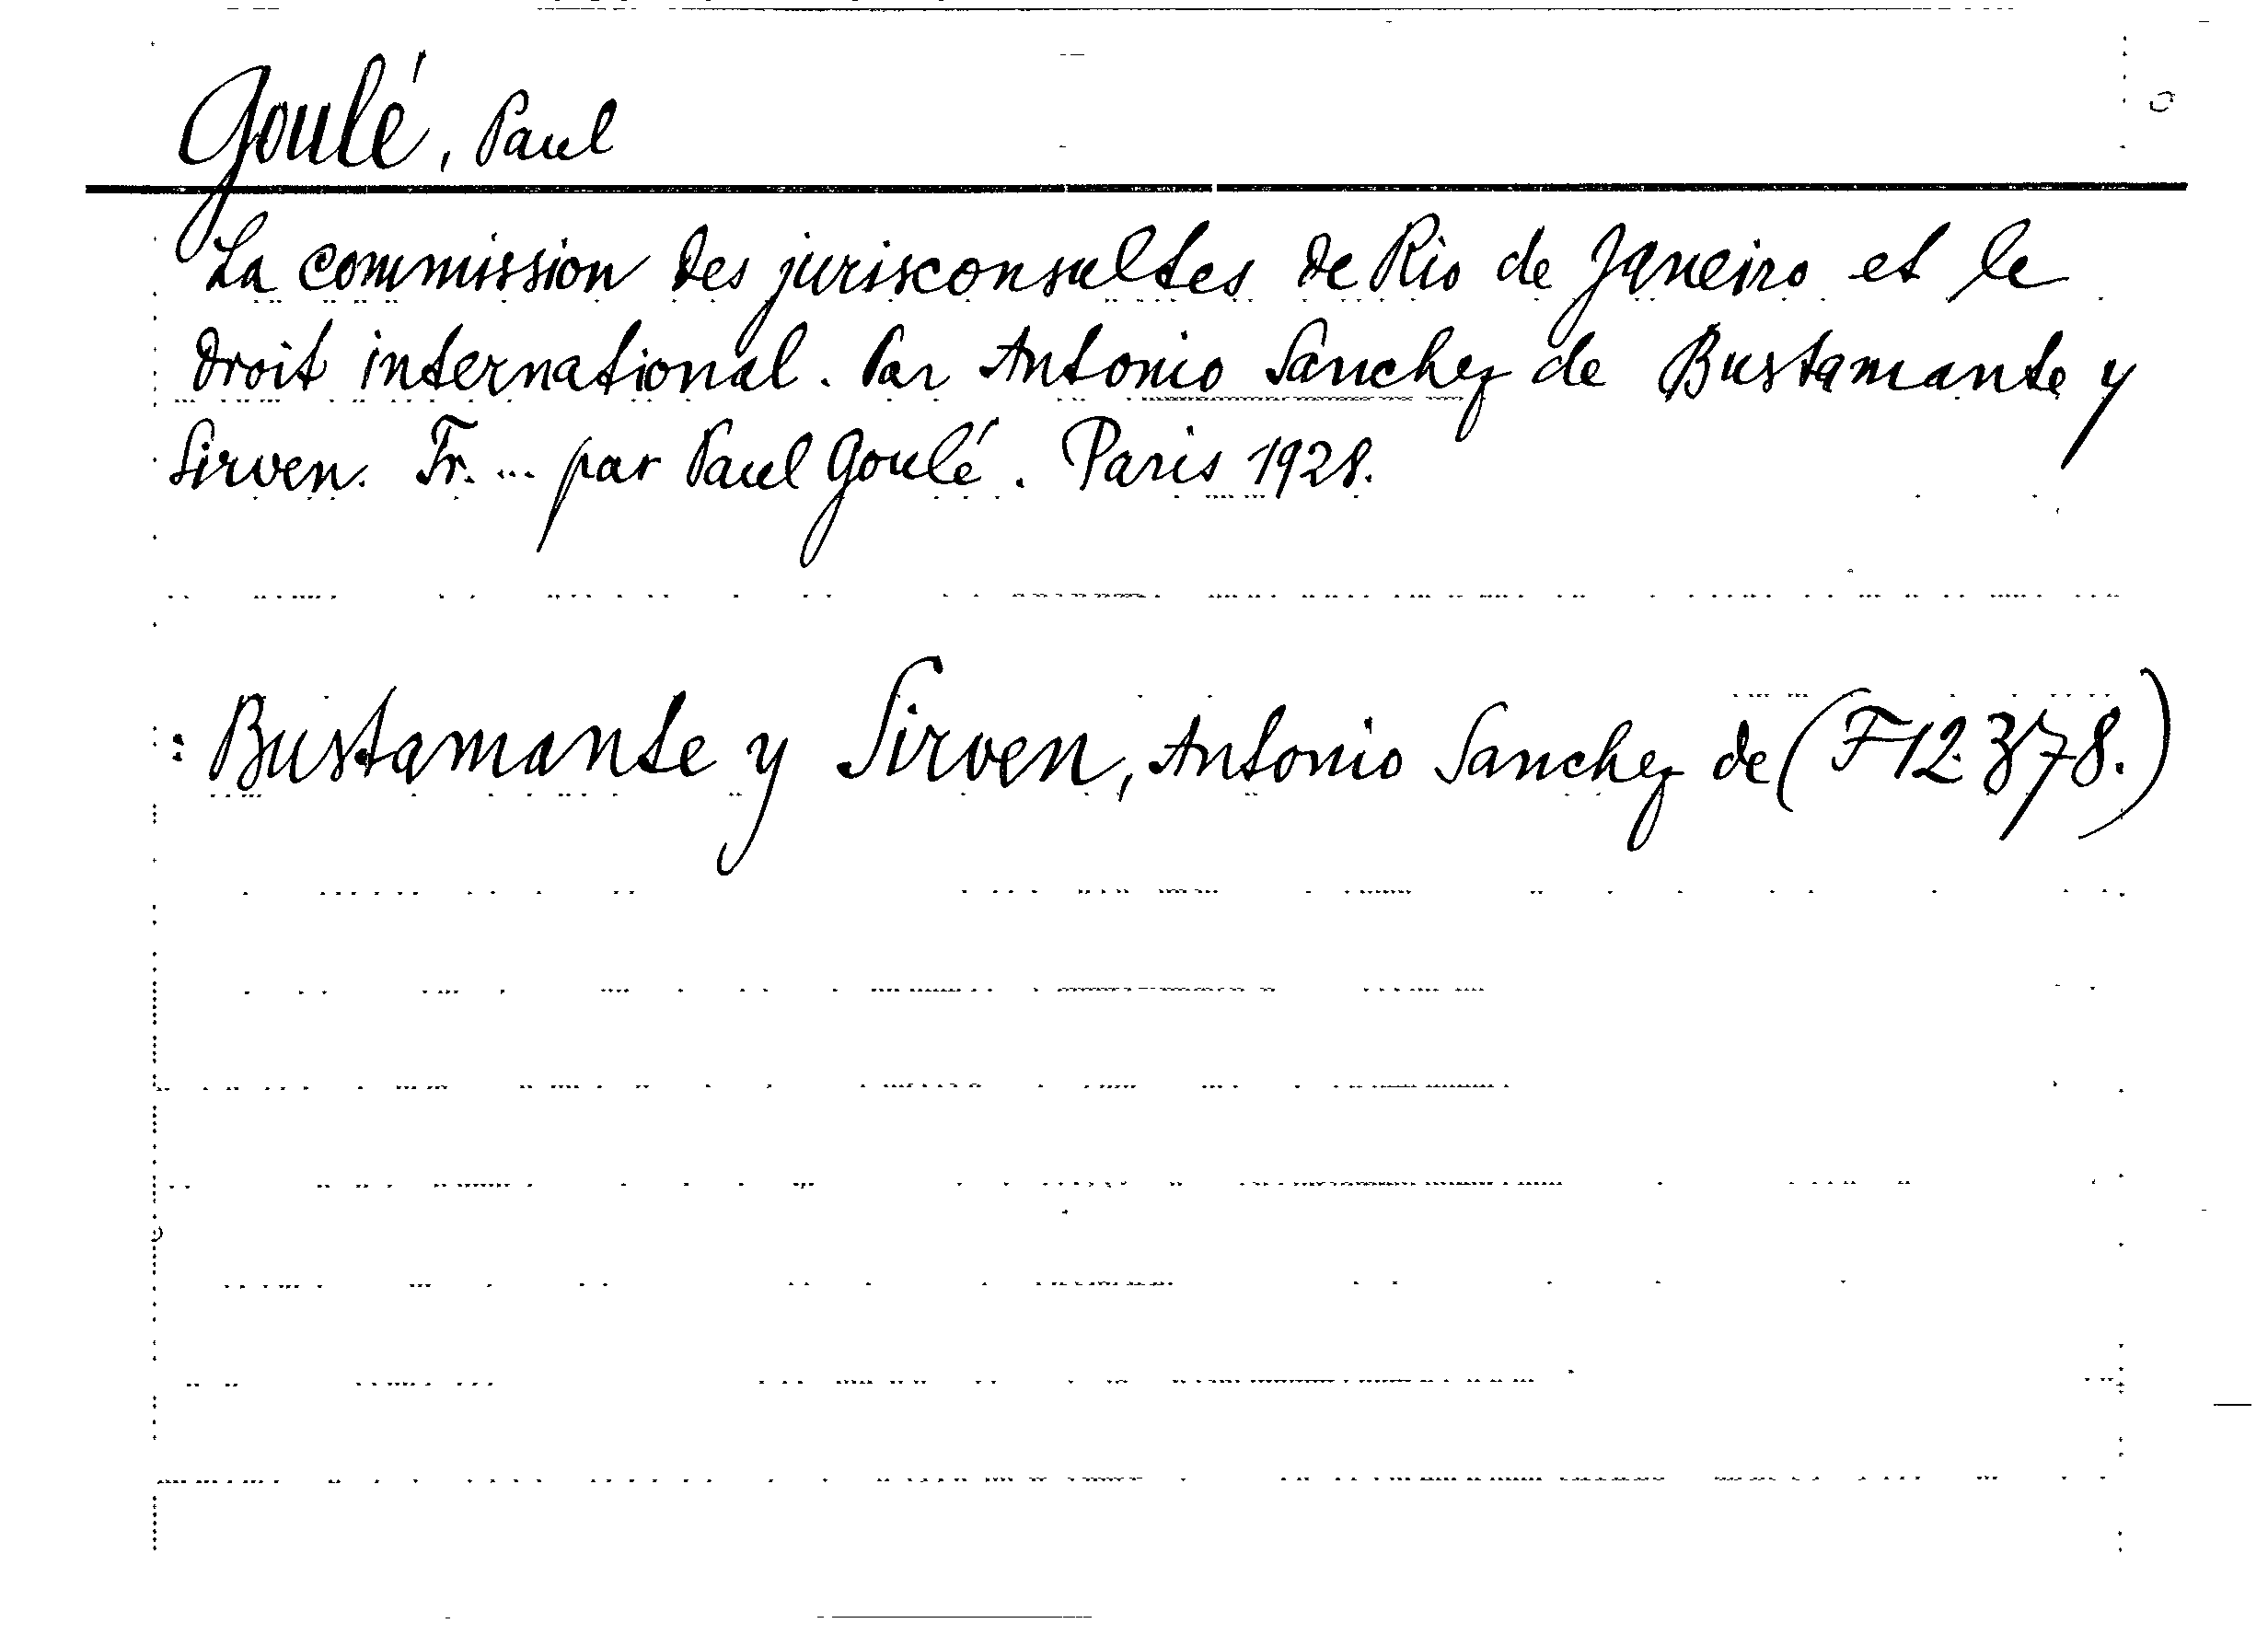 Goulé, Paul
La commission des jurisconsultes de Rio de Janeiro et le
droit international. Par Antonio Sanchez de Bustamante y
Sirven. Tr. ... par Paul Goulé. Paris 1928.
: Bustamante y Sirven, Antonio Sanchez de (F 12.378.)